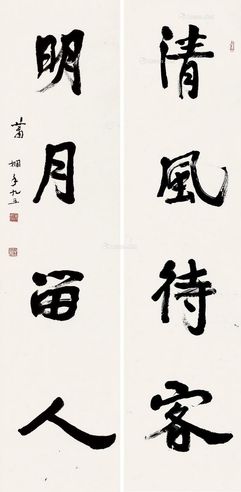 清風待客
明月留人
蕭嫻年九五